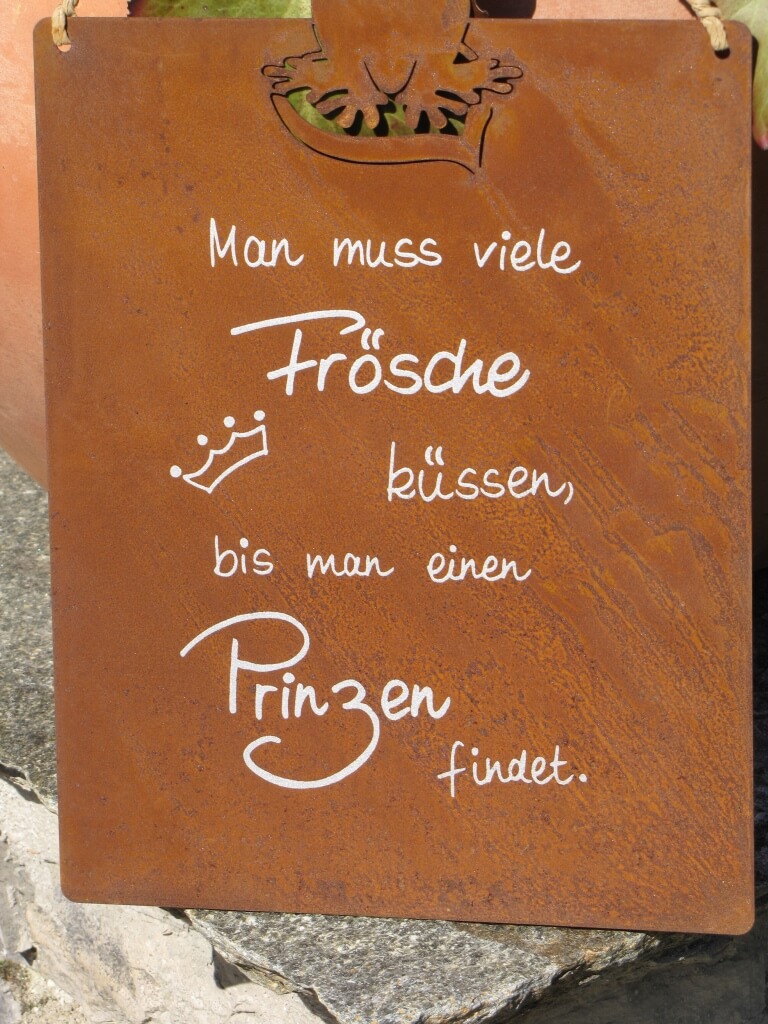 Man muss viele
Frösche
küssen,
bis man einen
Prinzen
findet.